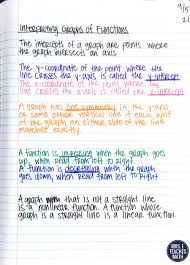 9/15
21
Interpreting Graphs of Functions
The intercepts of a graph are points where
the graph intersects an axis.
The y-coordinate of the point where the
line crosses the y-axis is called the y-intercept
The x-coordinate of the point where the
line crosses the x-axis is called the x-intercept
A graph has line symmetry in the y-axis
or some other vertical line if each half
of the graph on either side of the line
matches exactly.
A function is increasing when the graph goes
up, when read from left to right.
A function is decreasing when the graph
goes down, when read from left to right.
A graph that is not a straight line
is a nonlinear function. A function whose
graph is a straight line is a linear function
MRS. E
TEACHES
MATH